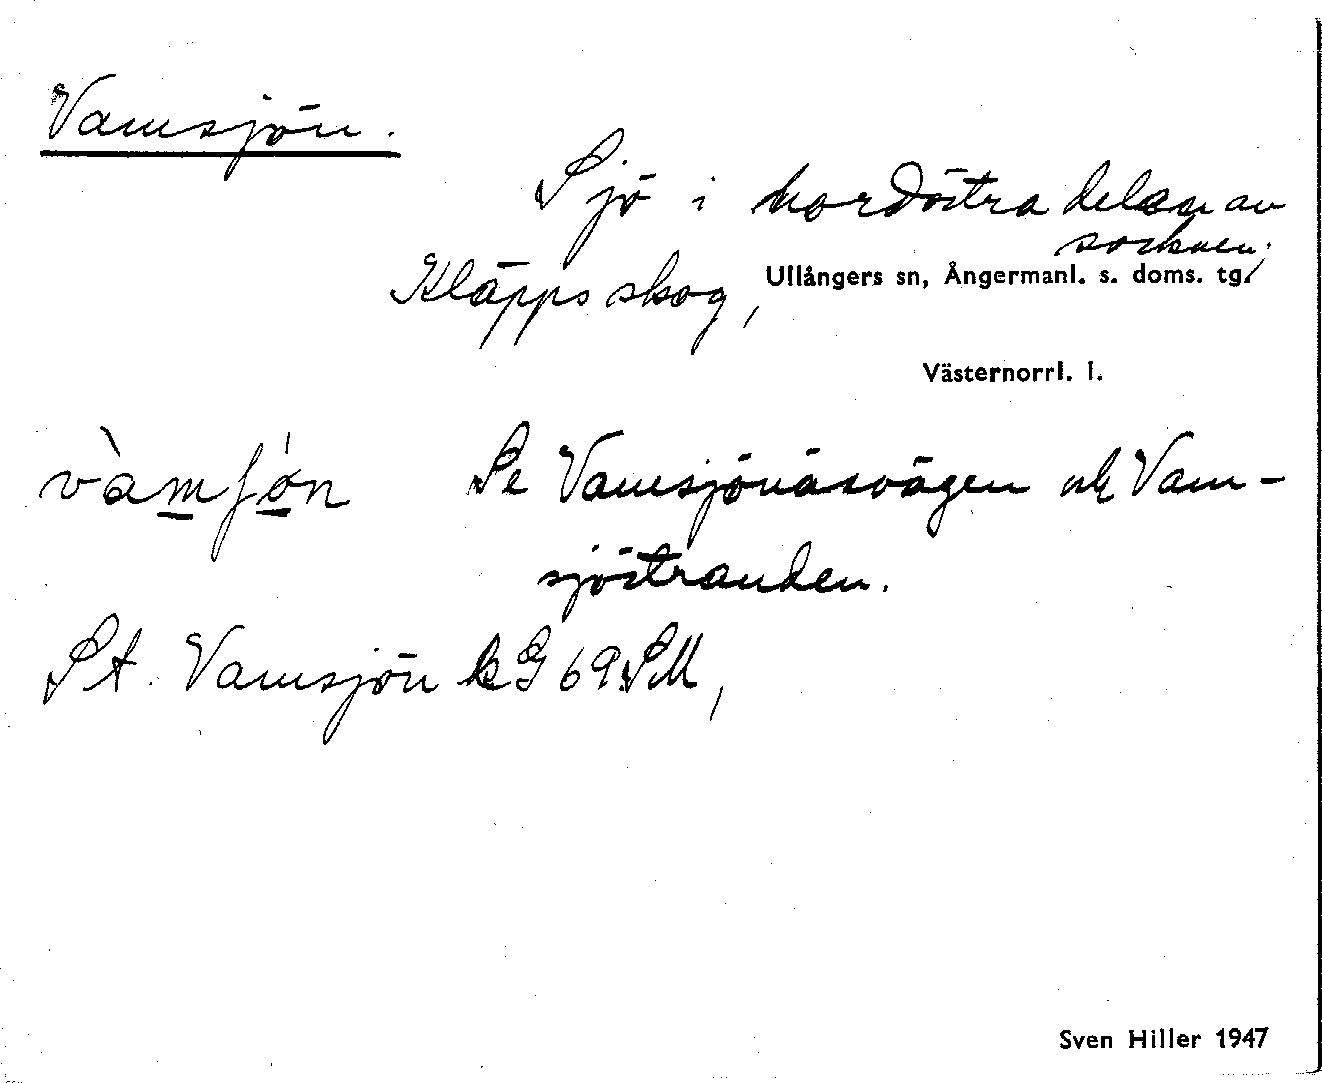 Vamsjön.
Sjö i nordöstra delen av
socknen;
Kläppsskog, Ullångers sn, Ångermanl. s. doms. tg.
Västernorrl. l.
vàmʃön Se Vamsjönäsvägen och Vam-
sjöstranden.
St. Vamsjön G 69 SM,
Sven Hiller 1947